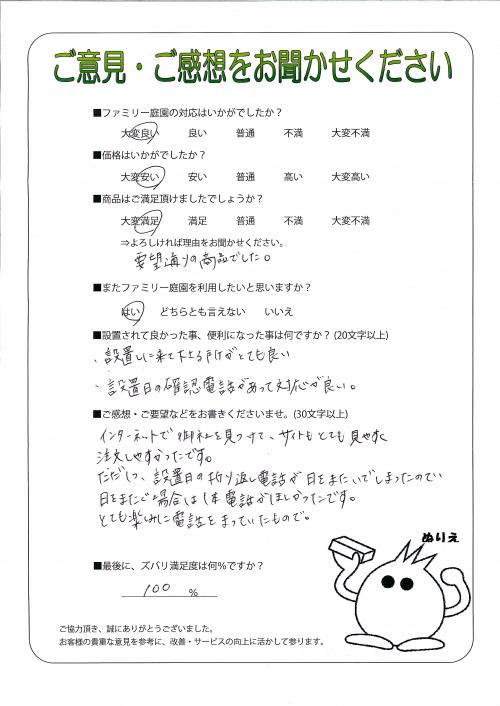 ご意見・ご感想をお聞かせください
■ファミリー庭園の対応はいかがでしたか？
大変良い 良い 普通 不満 大変不満
■価格はいかがでしたか？
大変安い 安い 普通 高い 大変高い
■商品はご満足頂けましたでしょうか？
大変満足 満足 普通 不満 大変不満
⇒よろしければ理由をお聞かせください。
要望通りの商品でした。
■またファミリー庭園を利用したいと思いますか？
はい どちらとも言えない いいえ
■設置されて良かった事、便利になった事は何ですか？(20文字以上)
・設置しに来て下さる時がとても良い
・設置日の確認電話があって対応が良い。
■ご感想・ご要望などをお書きくださいませ。(30文字以上)
インターネットで御社を見つけて、サイトもとても見やすく
注文しやすかったです。
ただし、設置日の折り返し電話が日をまたいでしまったので
日をまたぐ場合は1本電話がほしかったです。
とても楽しみに電話をまっていたもので。
ぬりえ
■最後に、ズバリ満足度は何％ですか？
100 ％
ご協力頂き、誠にありがとうございました。
お客様の貴重な意見を参考に、改善・サービスの向上に活かして参ります。